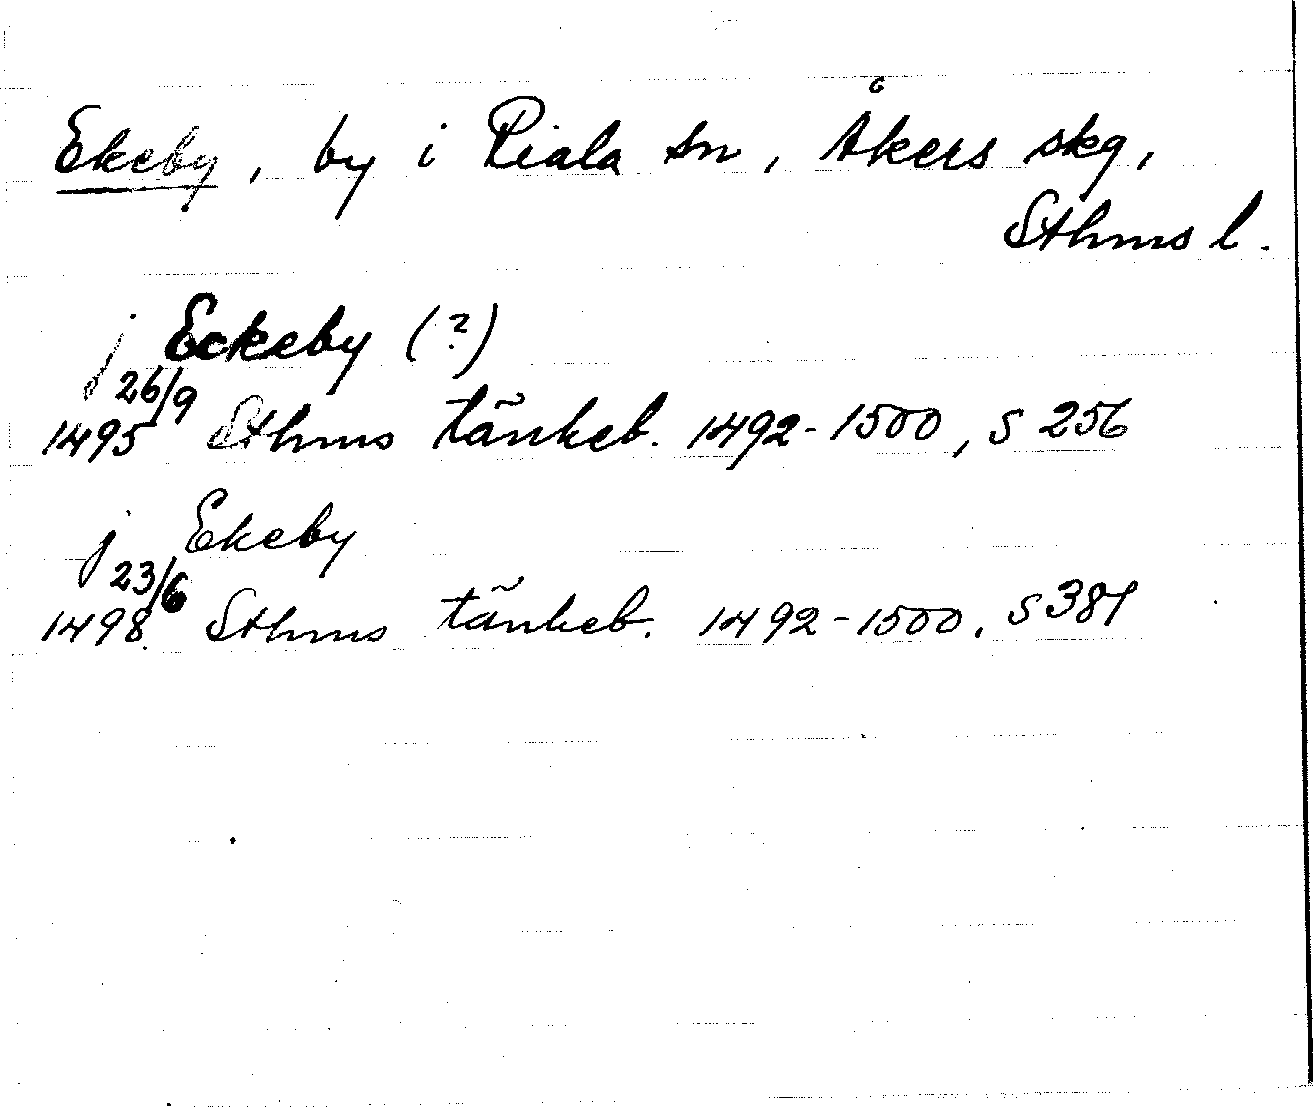 Ekeby, by i Riala sn, Åkers skg,
Sthms l.
j Eckeby (?)
26/9
1495 Sthms tänkeb. 1492-1500, s 256
j Ekeby
23/6
1498. Sthms tänkeb. 1492-1500, s 381